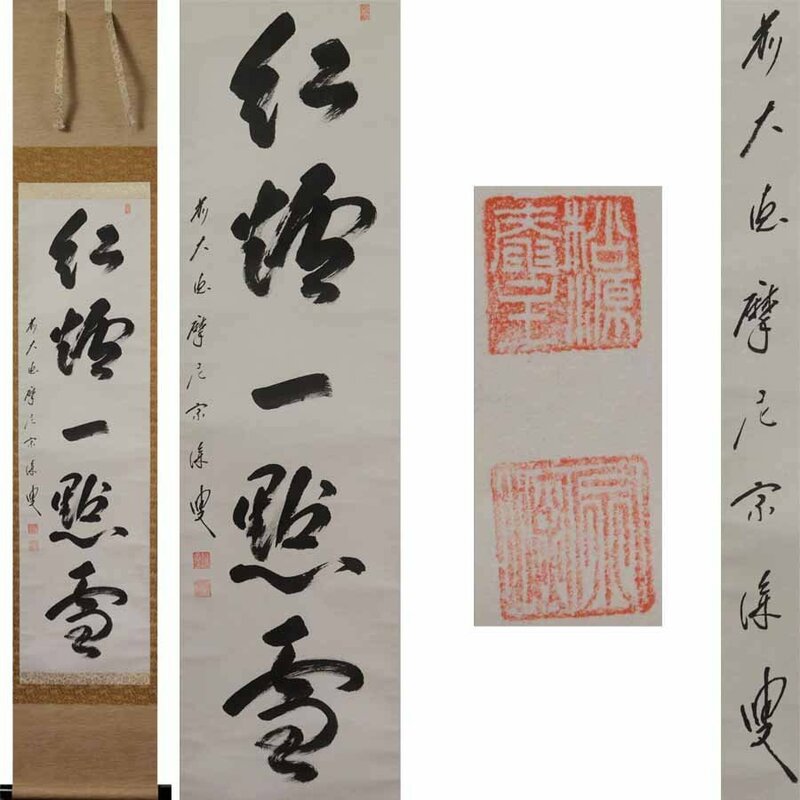 紅爐一點雪
前大徳摩尼宗叟
紅爐一點雪
前大徳摩尼宗叟
松源
前大徳摩尼宗叟